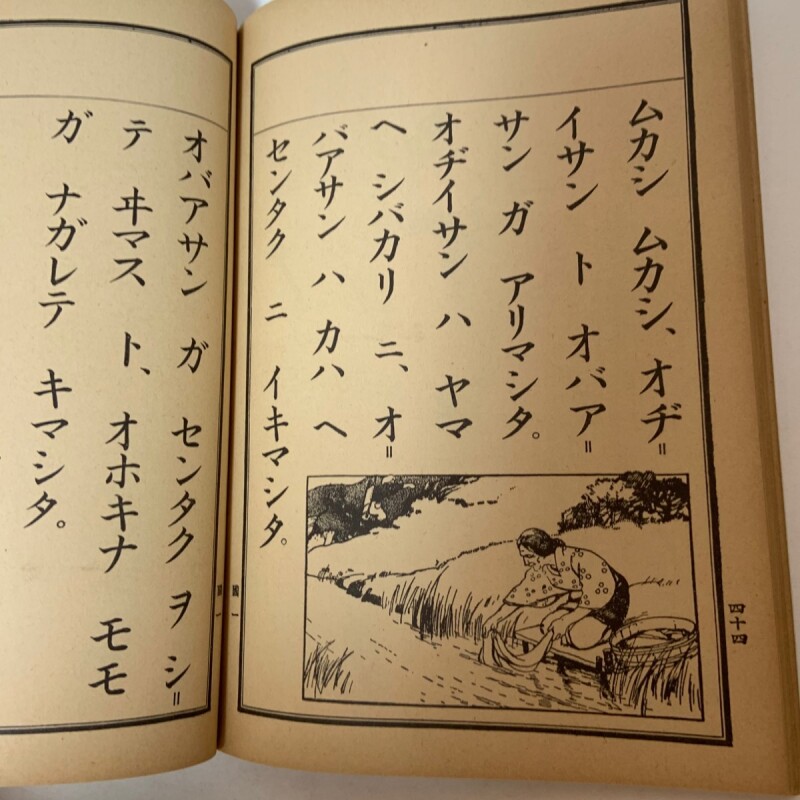 ムカシ ムカシ、オヂ＝
イサン ト オバア＝
サン ガ アリマシタ。
オヂイサン ハ ヤマ
ヘ シバカリ ニ、オ＝
バアサン ハ カハ ヘ
センタク ニ イキマシタ。
四十四
オバアサン ガ センタク ヲ シ＝
テ ヰマス ト、オホキナ モモ
ガ ナガレテ キマシタ。